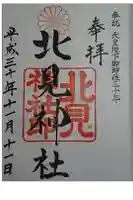 奉拝
北見神社
北見
神社
平成三十年十一月十一日